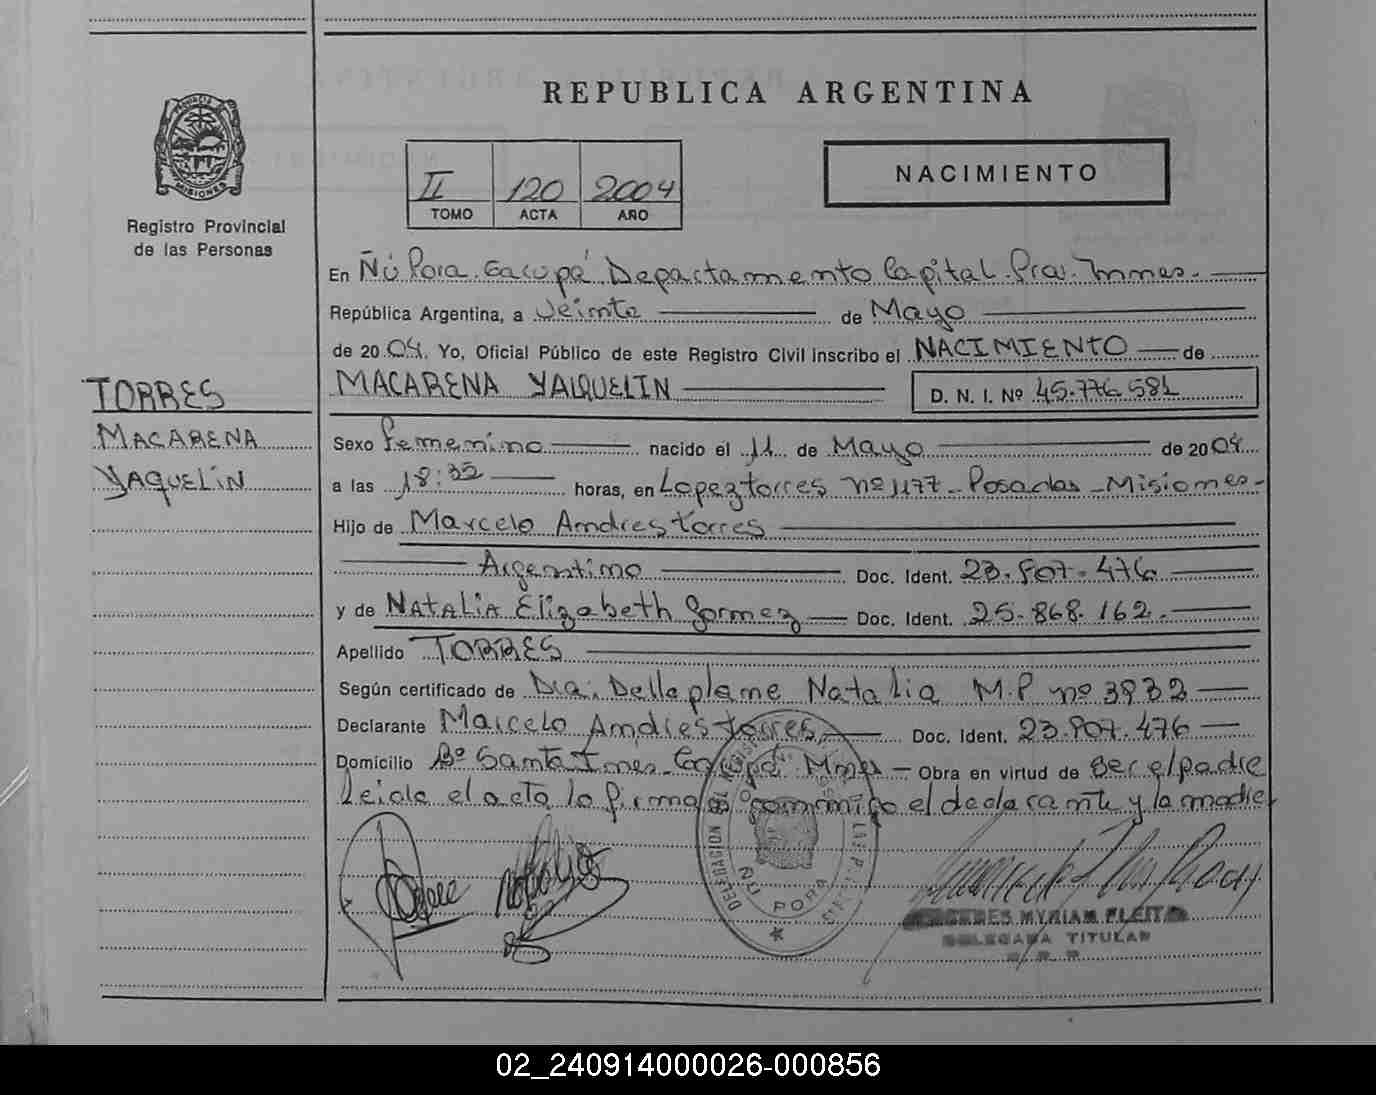 REPUBLICA ARGENTINA
PROVINCIA DE MISIONES
Registro Provincial
de las Personas
II 120 2004
TOMO ACTA AÑO
NACIMIENTO
En Ñú Pora Garupá Departamento Capital Prov. Mnes.
República Argentina, a Veinte de Mayo
de 2004. Yo, Oficial Público de este Registro Civil inscribo el NACIMIENTO de
MACARENA YAQUELIN D. N. I. Nº 45.776.581
TORRES
MACARENA
YAQUELIN
Sexo Femenino nacido el 11 de Mayo de 2004
a las 18:35 horas, en Lopez torres nº 1177 - Posadas - Misiones -
Hijo de Marcelo Andres torres
Argentino Doc. Ident. 23.807.476
y de NATALIA Elizabeth Gomez Doc. Ident. 25.868.162.
Apellido TORRES
Según certificado de Dra. Dellaplane Natalia M.P nº 3932
Declarante Marcelo Andres torres Doc. Ident. 23.807.476
Domicilio Bº Santa Ines Garupá Mnes - Obra en virtud de Ser el padre
Leida el acta la firma conmigo el declarante y la madre
DELEGACION
ÑU PORA
MYRIAM FLEITA
DELEGADA TITULAR
02_240914000026-000856